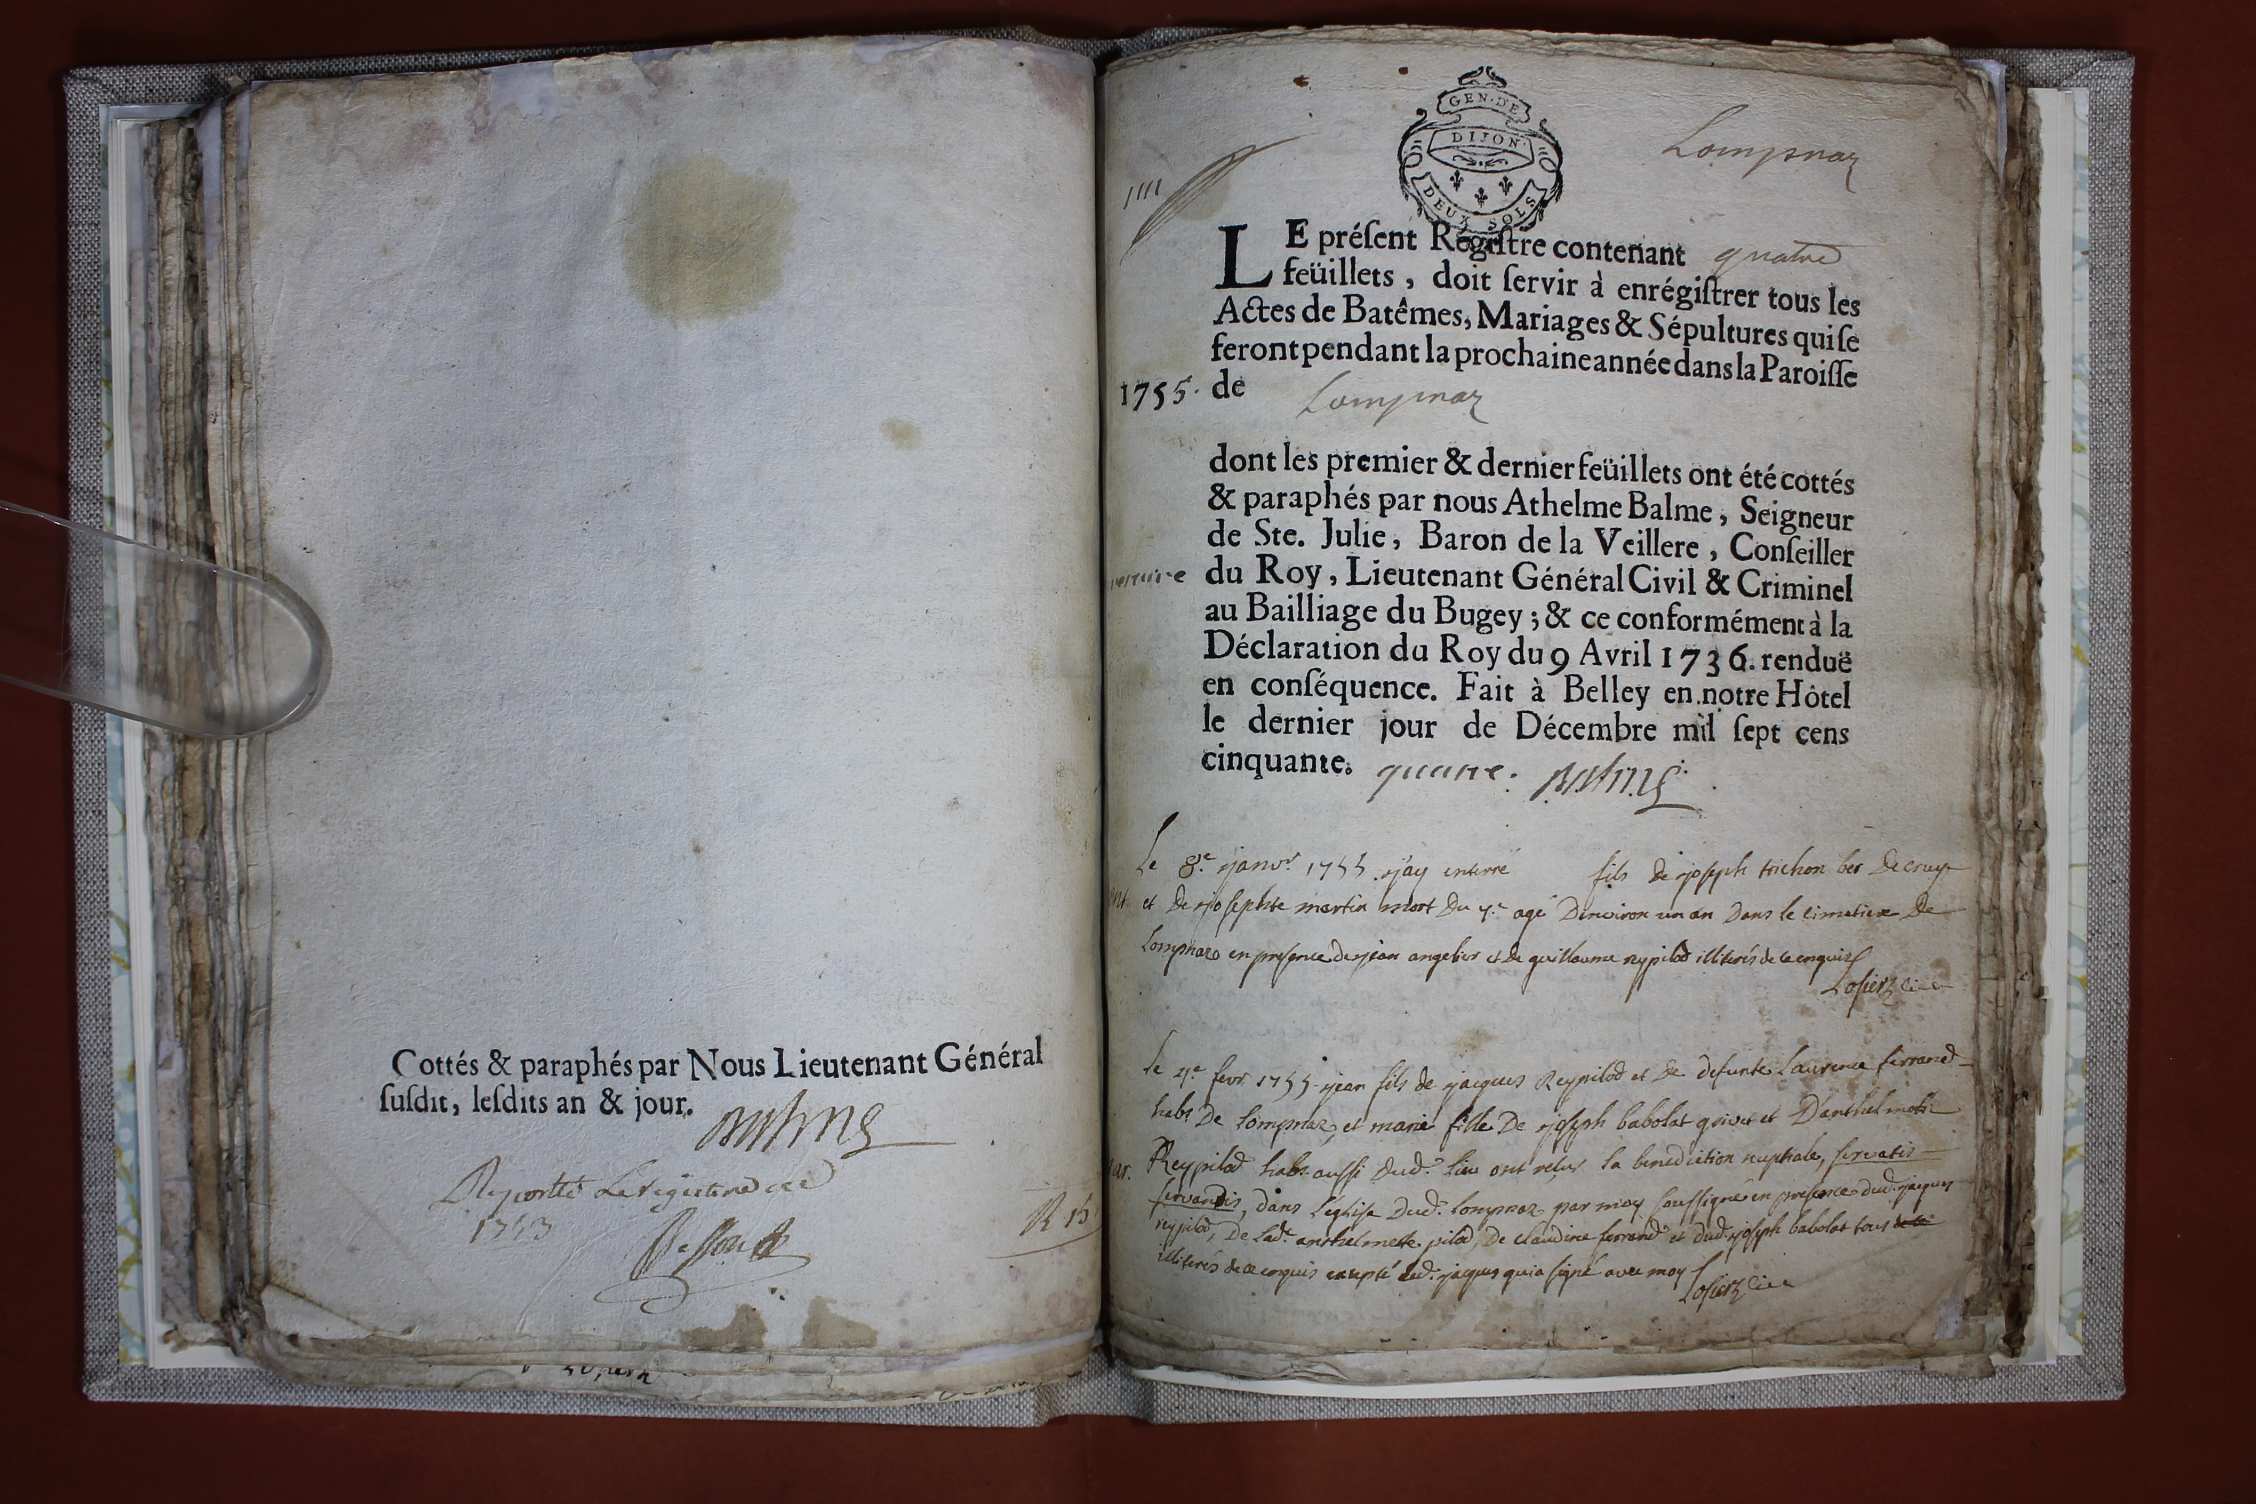 Cottés & paraphés par Nous Lieutenant Général
ſuſdit, leſdits an & jour.
Balme
1753
GEN·DE
DIJON
DEUX SOLS
Lompnaz
LE préſent Regiſtre contenant quatre
feüillets, doit ſervir à enrégiſtrer tous les
Actes de Batêmes, Mariages & Sépultures qui ſe
feront pendant la prochaine année dans la Paroiſſe
1755. de Lompnaz
dont les premier & dernier feüillets ont été cottés
& paraphés par nous Athelme Balme, Seigneur
de Ste. Julie, Baron de la Veillere, Conſeiller
du Roy, Lieutenant Général Civil & Criminel
au Bailliage du Bugey; & ce conformément à la
Déclaration du Roy du 9 Avril 1736. renduë
en conſéquence. Fait à Belley en notre Hôtel
le dernier jour de Décembre mil ſept cens
cinquante. quatre. Balme
Le 8.e janvr. 1755. j'ay enterré fils de joseph trichon
et de josephte martin mort du 7.e agé d'environ un an dans le cimetiere de
Lompnaz en presence de jean angelier et de guillaume reypilod illiterés de ce enquis
Le 4.e fevr. 1755. jean fils de jacques Reypilod et de defunte Laurence ferrand
habt. de Lompnaz, et marie fille de joseph babolat et d'anthelmette
Reypilod habt. aussi dud. lieu ont reçus la benediction nuptiale, servatis
servandis, dans l'eglise dud. Lompnaz par moy soussigné en presence dud. jacques
reypilod, de lad. anthelmette pilod, de claudine ferrand et dud. joseph babolat tous
illiterés de ce enquis excepté led. jacques qui a signé avec moy